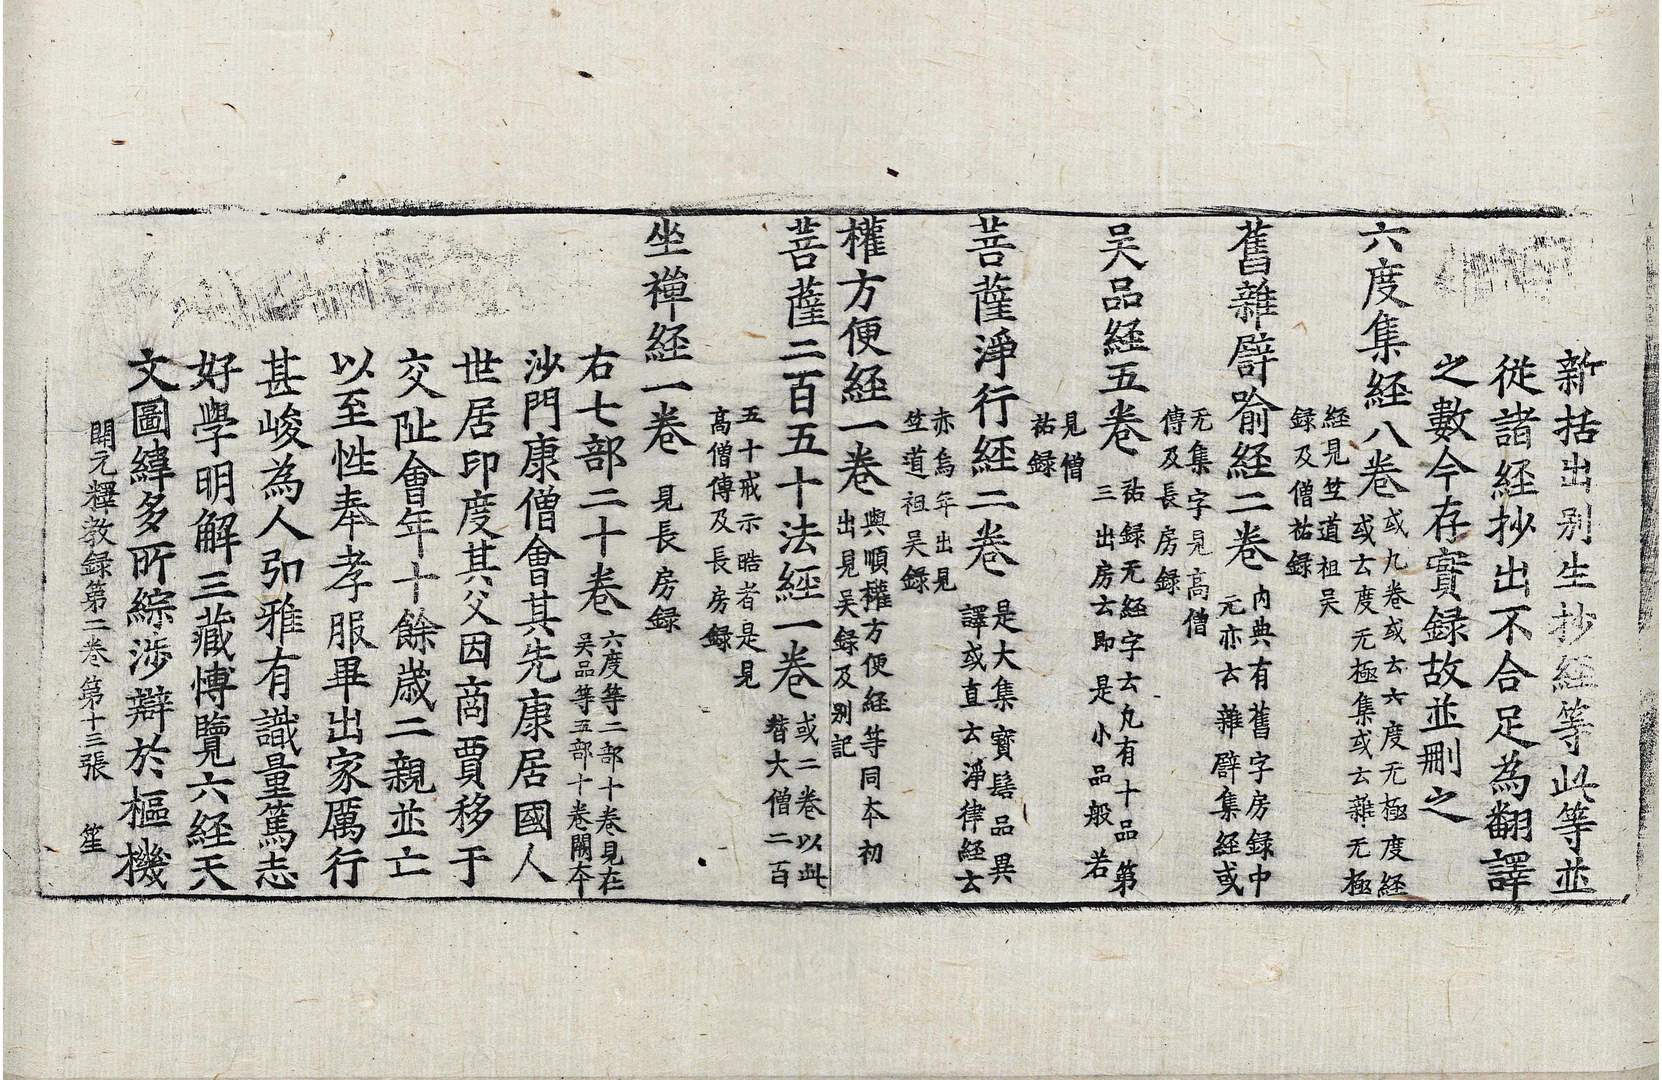 新括出别生抄經等此等並
從諸經抄出不合足為翻譯
之數今存實録故並刪之
六度集経八卷 或九卷或云六度无極度経
或云度无極集或云雜无極
経見竺道祖吴
録及僧祐録
舊雜譬喻経二卷 内典有舊字房録中
元亦云雜譬集経或
无集字見高僧
傳及長房録
吴品経五卷 祐録无経字云凡有十品第
三出房云即是小品般若
菩薩淨行経二卷 是大集寳髻品異
譯或直云淨律経云
見僧
祐録
權方便経一卷 與順權方便経等同本初
出見吴録及别記
赤烏年出見
竺道祖吴録
菩薩二百五十法経一卷 或二卷以此
替大僧二百
五十戒示晧者是見
髙僧傳及長房録
坐禪経一卷 見長房録
右七部二十卷 六度等二部十卷見在
吴品等五部十卷闕本
沙門康僧會其先康居國人
世居印度其父因商賈移于
交阯會年十餘歳二親並亡
以至性奉孝服畢出家厲行
甚峻為人弘雅有識量篤志
好學明解三藏博覽六経天
文圖緯多所綜涉辯於樞機
開元釋教録第二卷 第十三張 笙